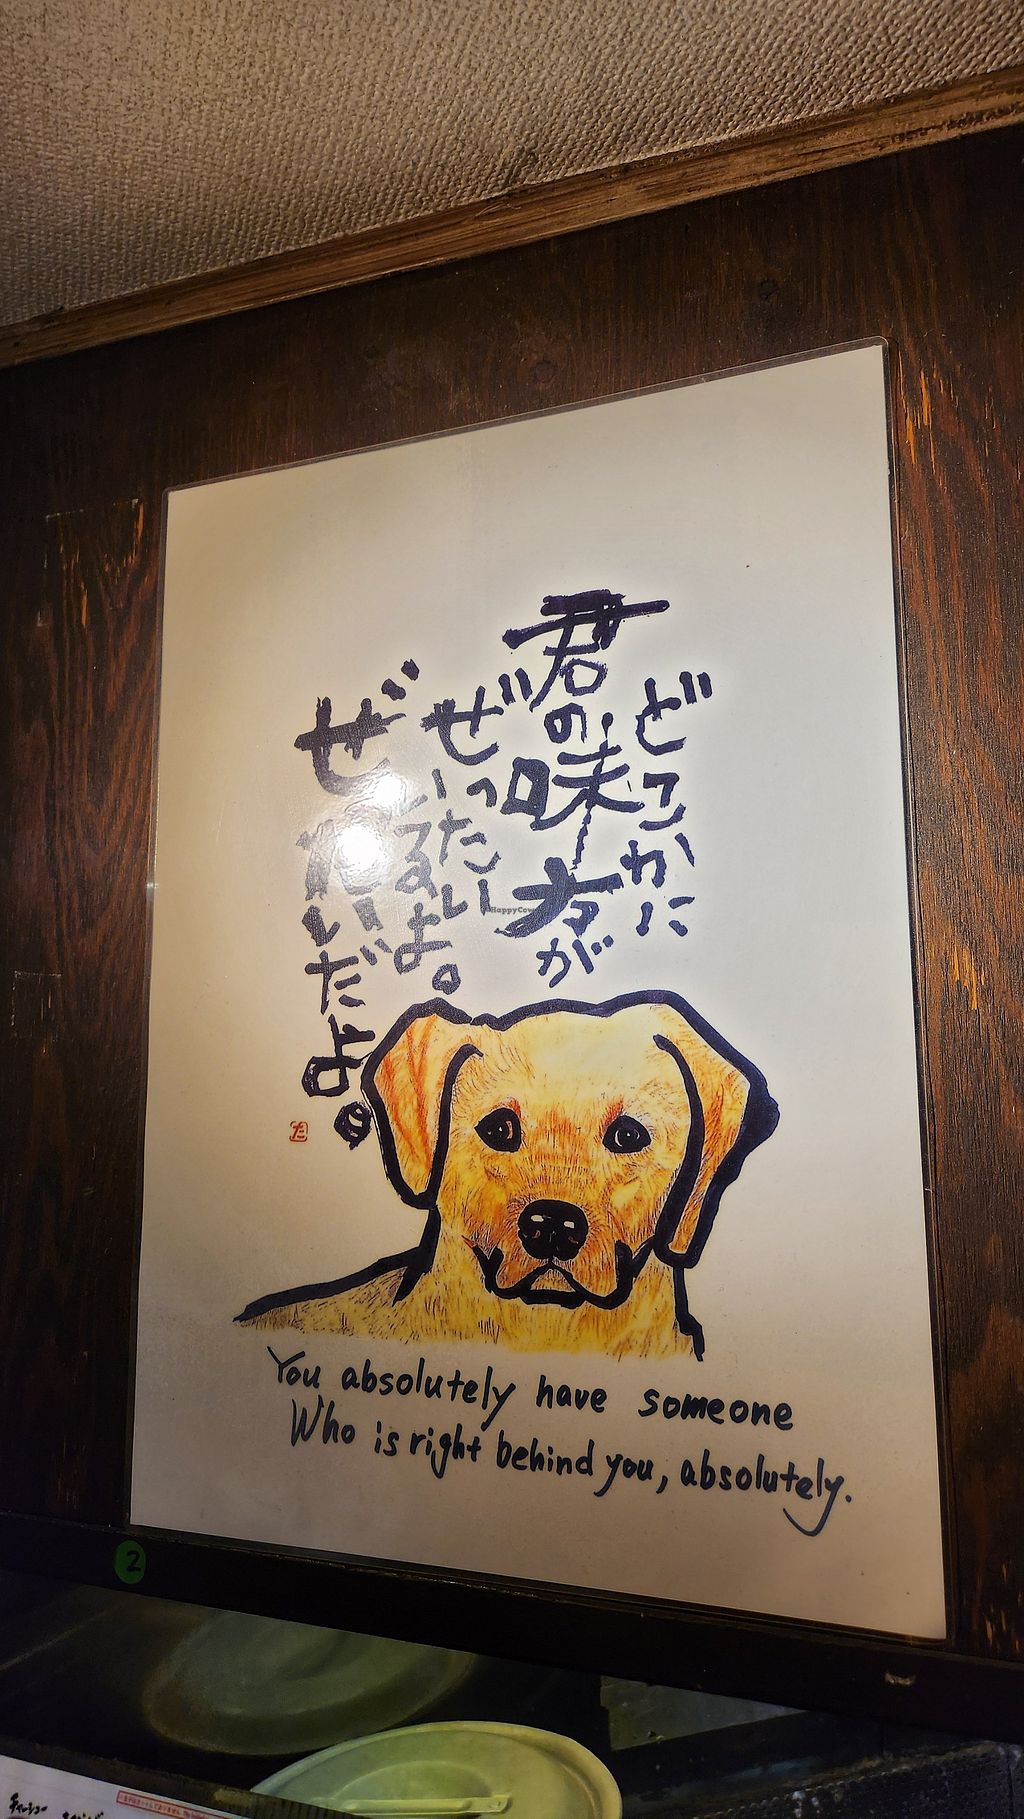 どこかに
君の味方が
ぜったい
いるよ。
ぜったいだよ。
た
You absolutely have someone
Who is right behind you, absolutely.
HappyCow
2
チャーシュー